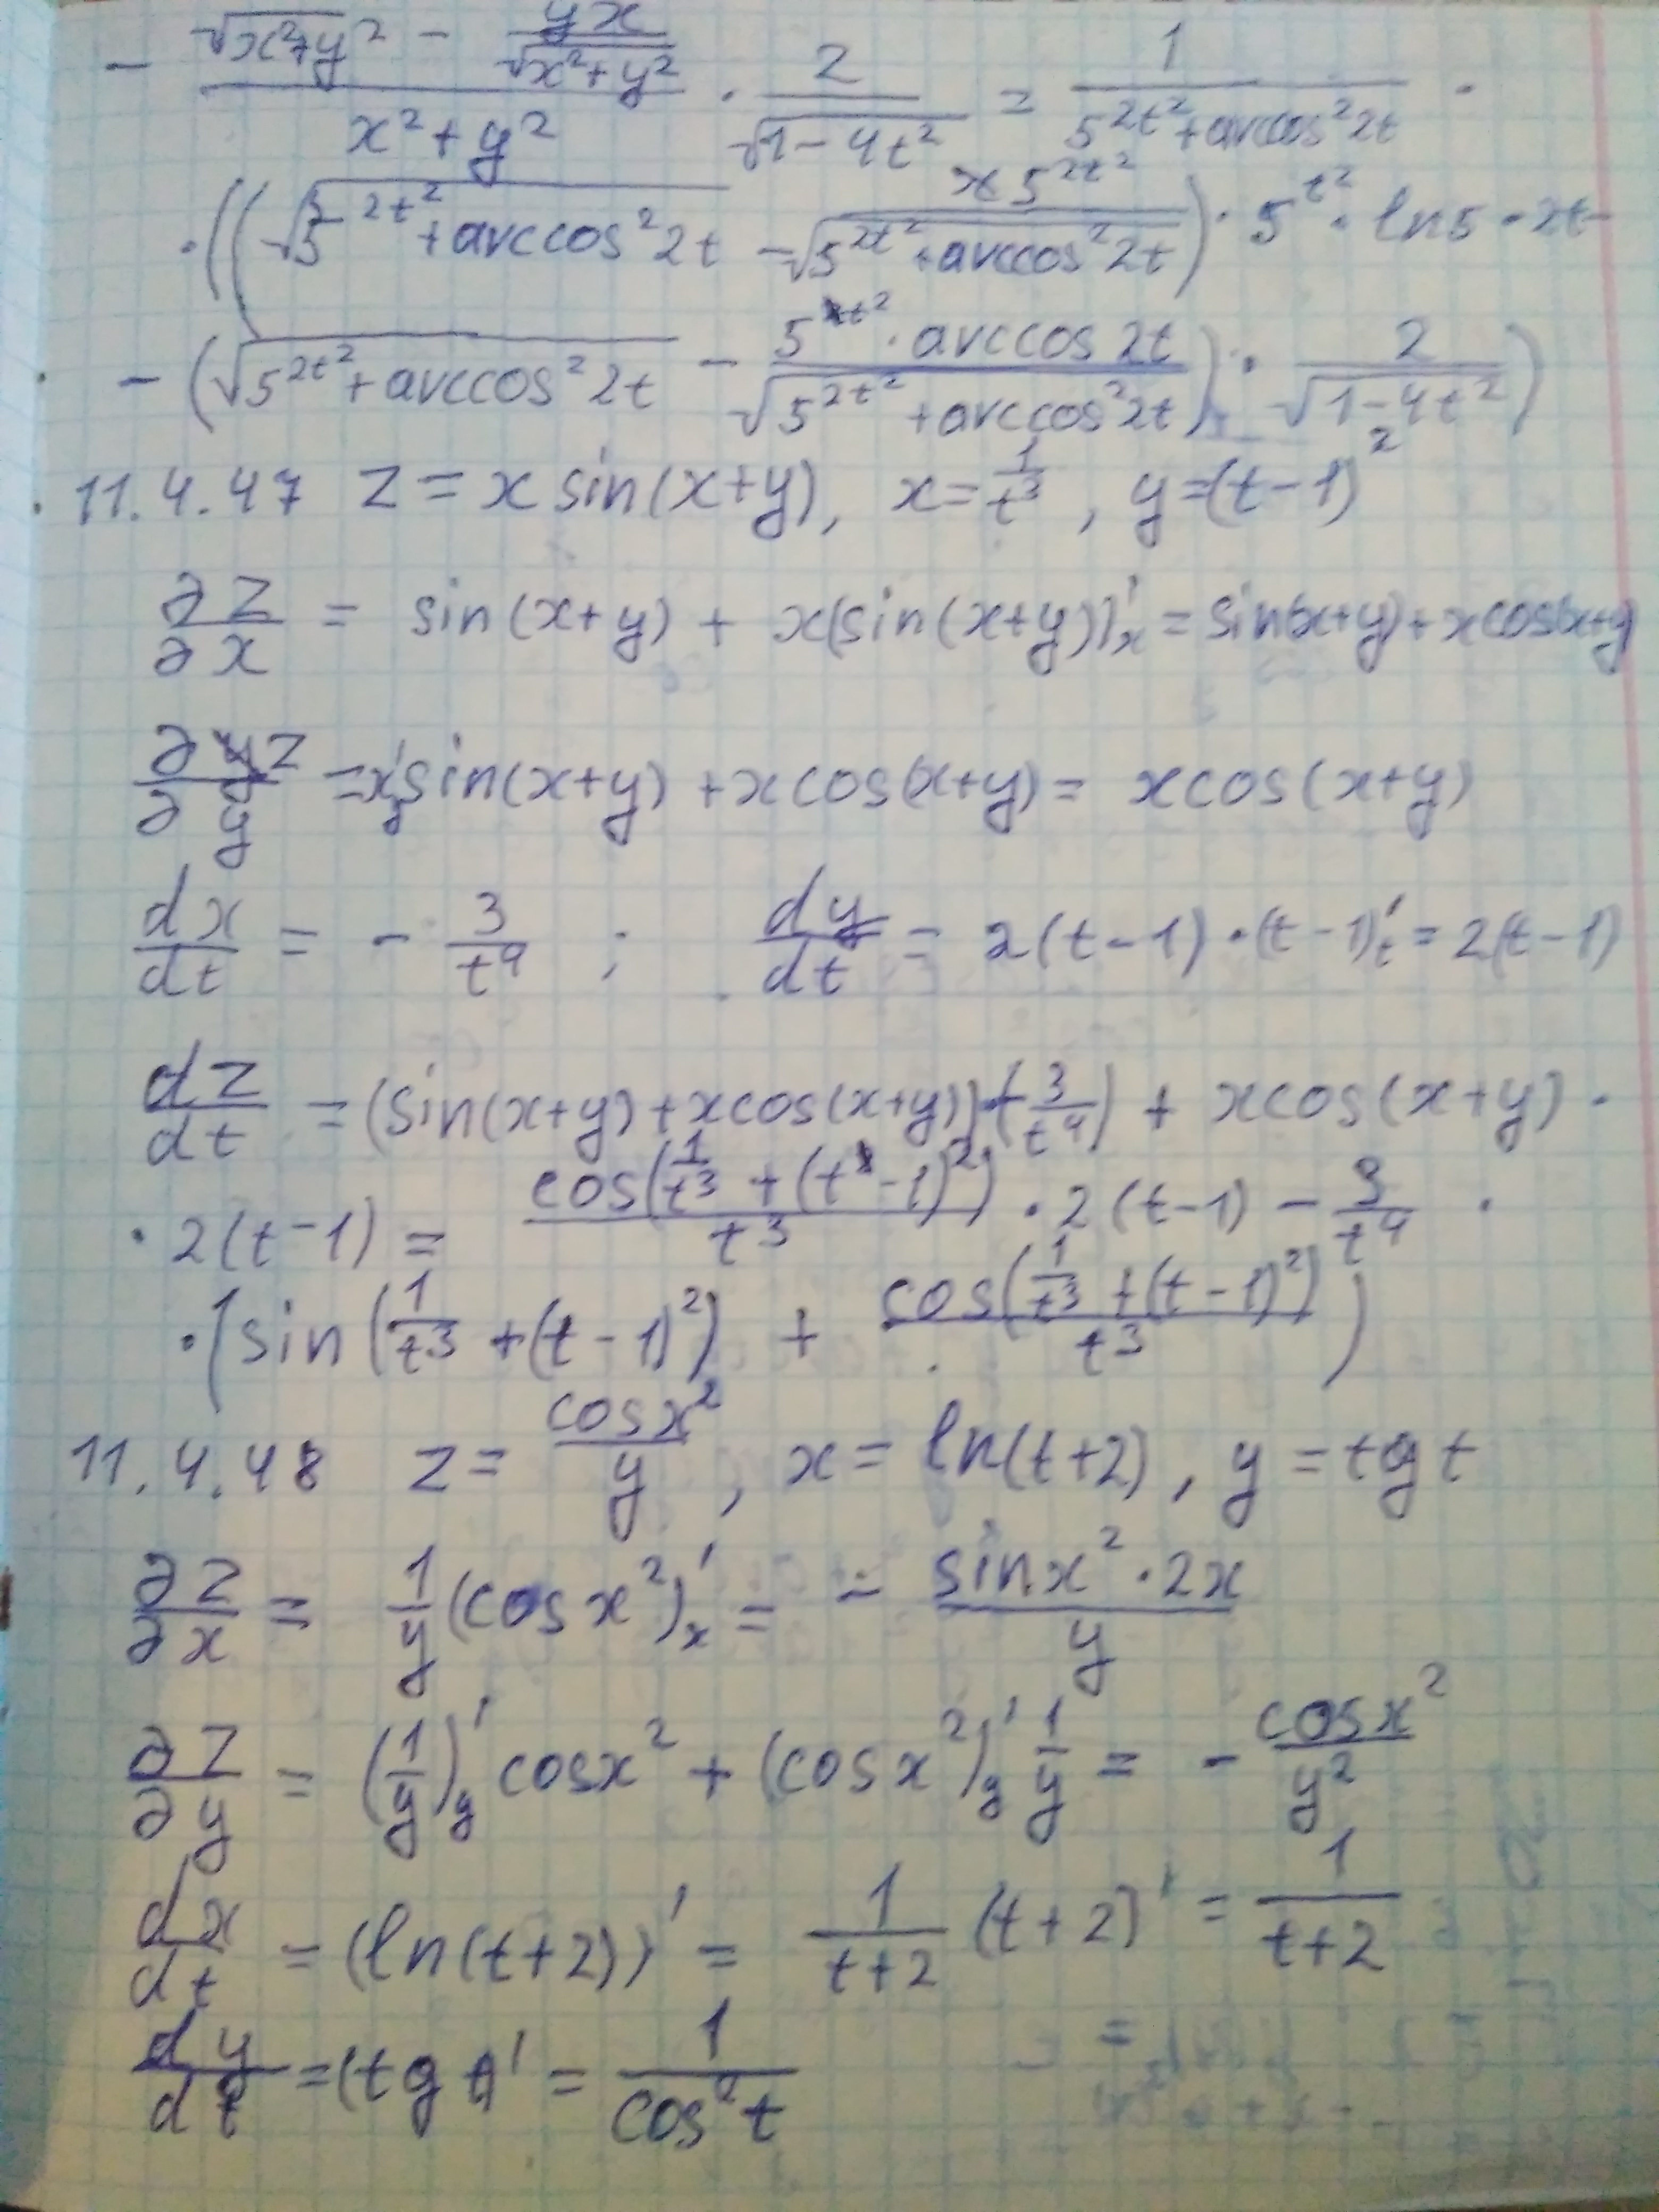 - (√(x²+y²) - yx/√(x²+y²))/(x²+y²) · 2/√(1-4t²) = 1/(5^(2t²)+arccos²2t) ·
·((√(5^(2t²)+arccos²2t) - 5^(2t²)/√(5^(2t²)+arccos²2t))· 5^(t²) · ln5 · 2t -
- (√(5^(2t²)+arccos²2t) - 5^(t²)·arccos2t/√(5^(2t²)+arccos²2t)) · 2/√(1-4t²))
11.4.47 z = x sin(x+y), x = 1/t³, y=(t-1)²
∂z/∂x = sin(x+y) + x(sin(x+y))'ₓ = sin(x+y)+xcos(x+y)
∂z/∂y = x'_y sin(x+y) + xcos(x+y) = xcos(x+y)
dx/dt = - 3/t⁴ ; dy/dt = 2(t-1)·(t-1)'_t = 2(t-1)
dz/dt = (sin(x+y)+xcos(x+y))·(-3/t⁴) + xcos(x+y) ·
· 2(t-1) = cos(1/t³ + (t-1)²)/t³ · 2(t-1) - 3/t⁴ ·
·(sin(1/t³ +(t-1)²) + cos(1/t³ +(t-1)²)/t³)
11.4.48 z = cosx²/y, x = ln(t+2), y = tg t
∂z/∂x = 1/y (cosx²)'ₓ = - sinx²·2x/y
∂z/∂y = (1/y)'_y cosx² + (cosx²)'_y 1/y = - cosx²/y²
dx/dt = (ln(t+2))' = 1/(t+2) (t+2)' = 1/(t+2)
dy/dt = (tg t)' = 1/cos²t